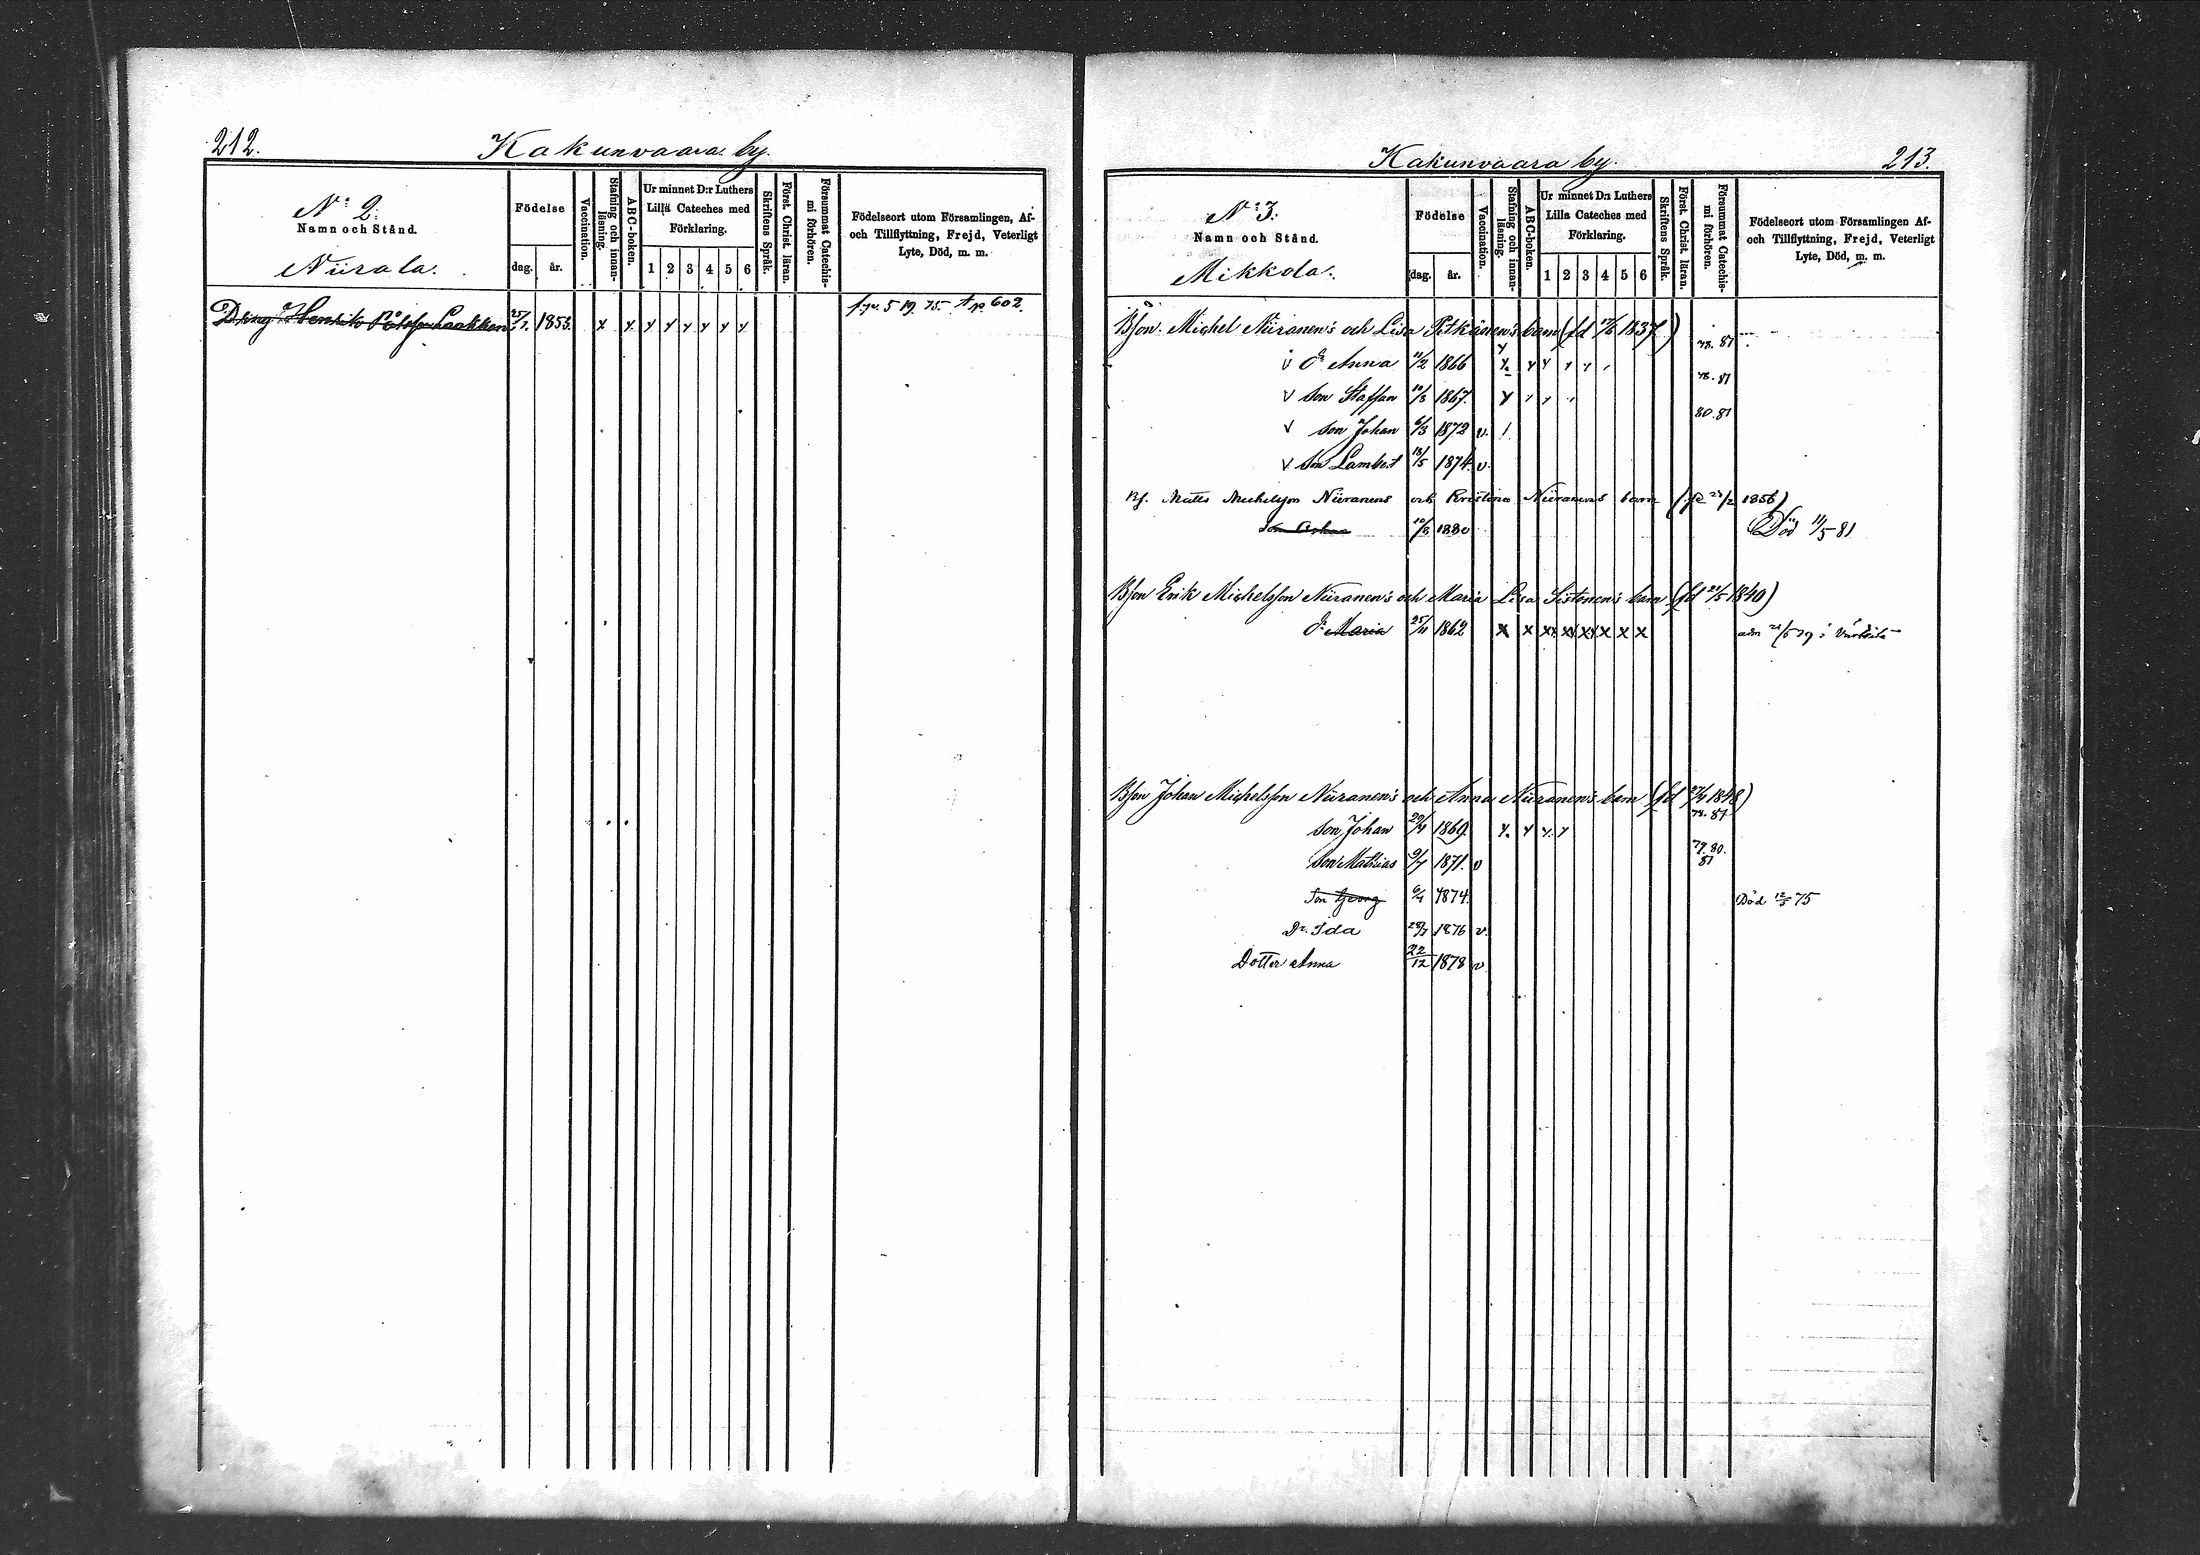 212.
Kakunvaara by.
N:o 2.
Namn och Stånd.
Niirala.
Födelse
dag. år.
Vaccination.
Stafning och innanläsning.
ABC-boken.
Ur minnet D:r Luthers
Lilla Cateches med
Förklaring.
1 2 3 4 5 6
Skriftens Språk.
Först. Christ. läran.
Försummat Catechismi förhören.
Födelseort utom Församlingen, Af-
och Tillflyttning, Frejd, Veterligt
Lyte, Död, m. m.
Dräng Henrik Laakkon 1853. 75 602.
Kakunvaara by.
213.
N:o 3.
Namn och Stånd.
Mikkola.
Födelse
dag. år.
Vaccination.
Stafning och innanläsning.
ABC-boken.
Ur minnet D:r Luthers
Lilla Cateches med
Förklaring.
1 2 3 4 5 6
Skriftens Språk.
Först. Christ. läran.
Försummat Catechismi förhören.
Födelseort utom Församlingen Af-
och Tillflyttning, Frejd, Veterligt
Lyte, Död, m. m.
Bson. Michel Niiranen's och Lisa Pitkänen's barn (fd 1837.)
78. 87
v dr Anna 11/2 1866
78. 81
v son Staffan 10/8 1867.
80. 81
v son Johan 6/3 1872 v.
v son Lambert 18/5 1874. v.
Bs. Matts Michelsson Niiranens och Kristina Niiranens barn (fd 1856)
Son 1880 Död 11/5 81
Bson Erik Michelsson Niiranen's och Maria Lisa Sistonen's barn (fd 21/5 1840)
dr Maria 25/11 1862 x x x x x x x x adm 79 i
Bson Johan Michelsson Niiranen's och Anna Niiranen's barn (fd 1848)
son Johan 1869. 78. 81
son Mathias 9/7 1871. v 79. 80. 81
Son Georg 1874. Död 75
Dr. Ida 1876 v.
Dotter Anna 22/12 1878 v